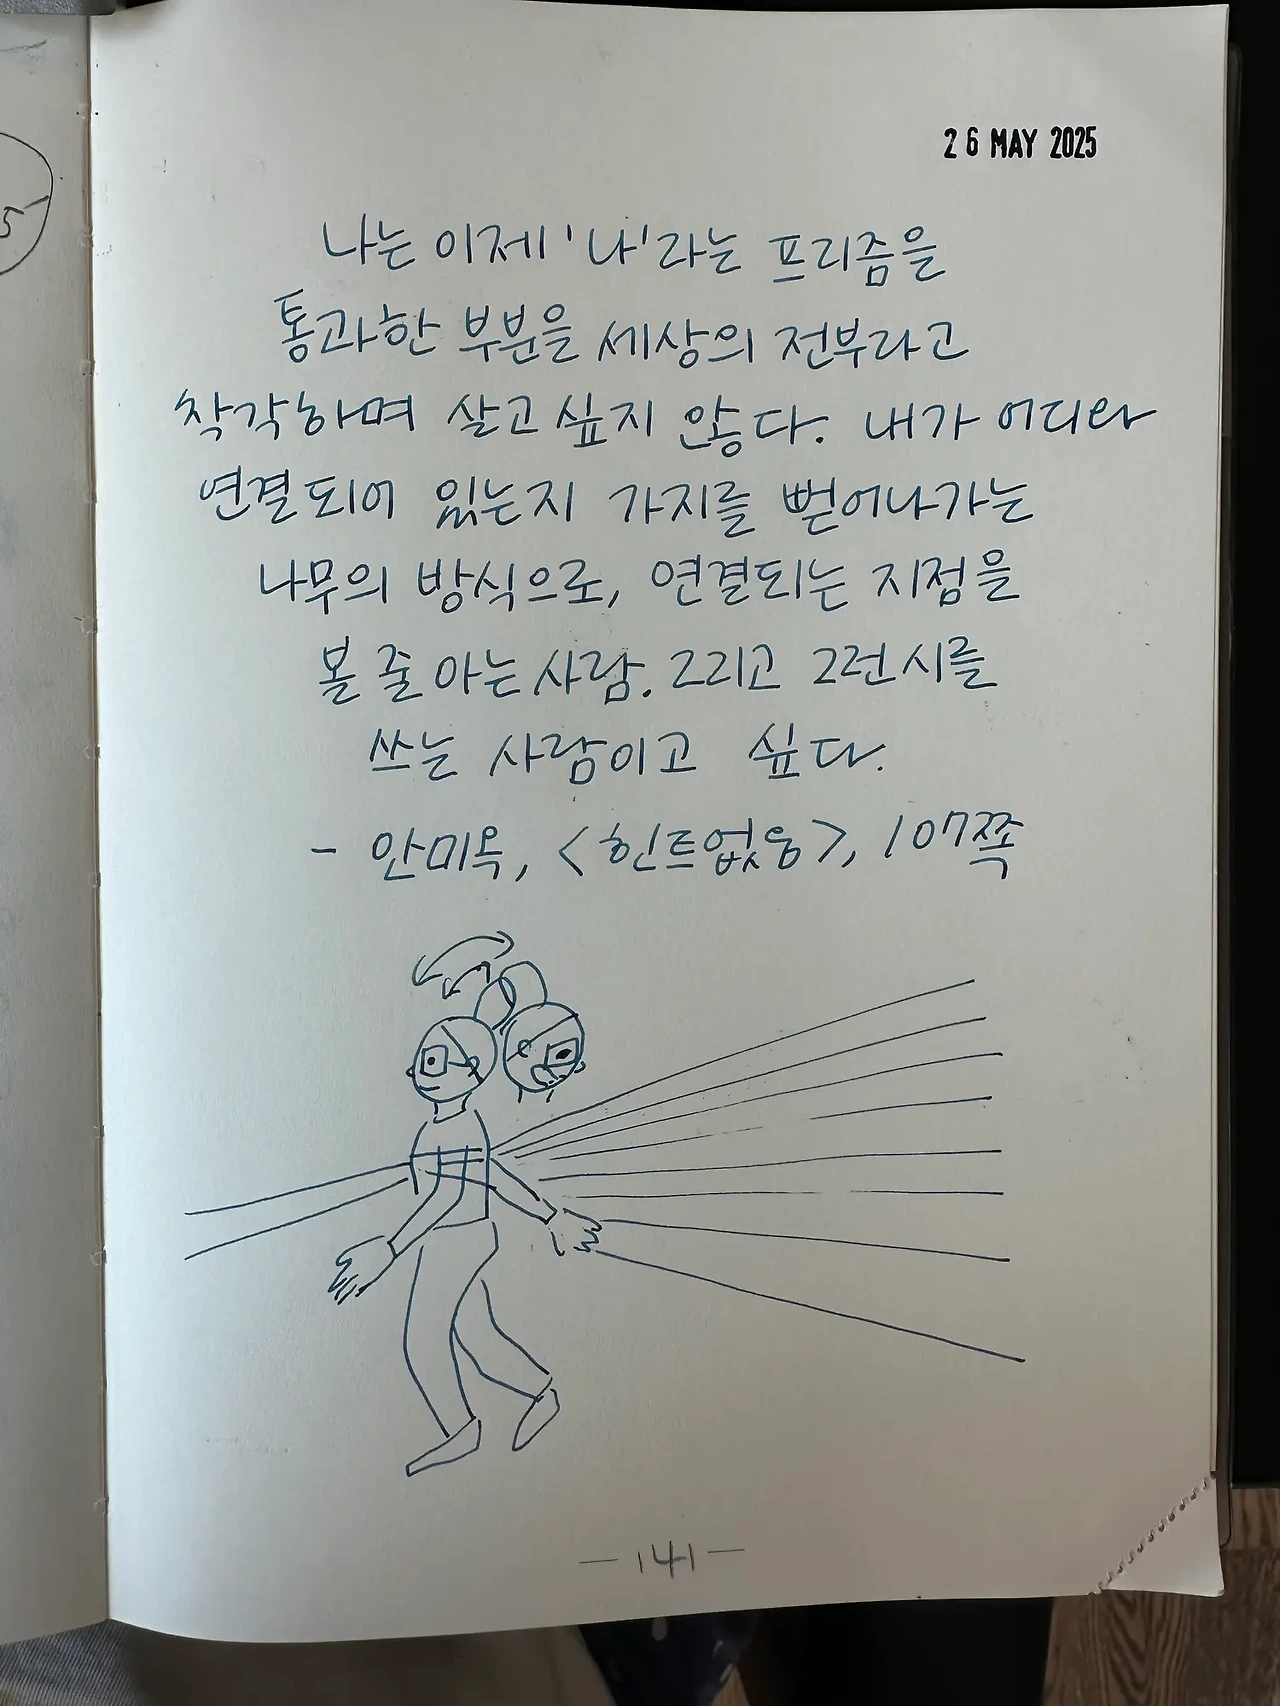 5
26 MAY 2025
나는 이제 '나'라는 프리즘을
통과한 부분을 세상의 전부라고
착각하며 살고 싶지 않다. 내가 어디와
연결되어 있는지 가지를 뻗어나가는
나무의 방식으로, 연결되는 지점을
볼 줄 아는 사람. 그리고 그런 시를
쓰는 사람이고 싶다.
- 안미옥, <힌트없음>, 107쪽
— 141 —